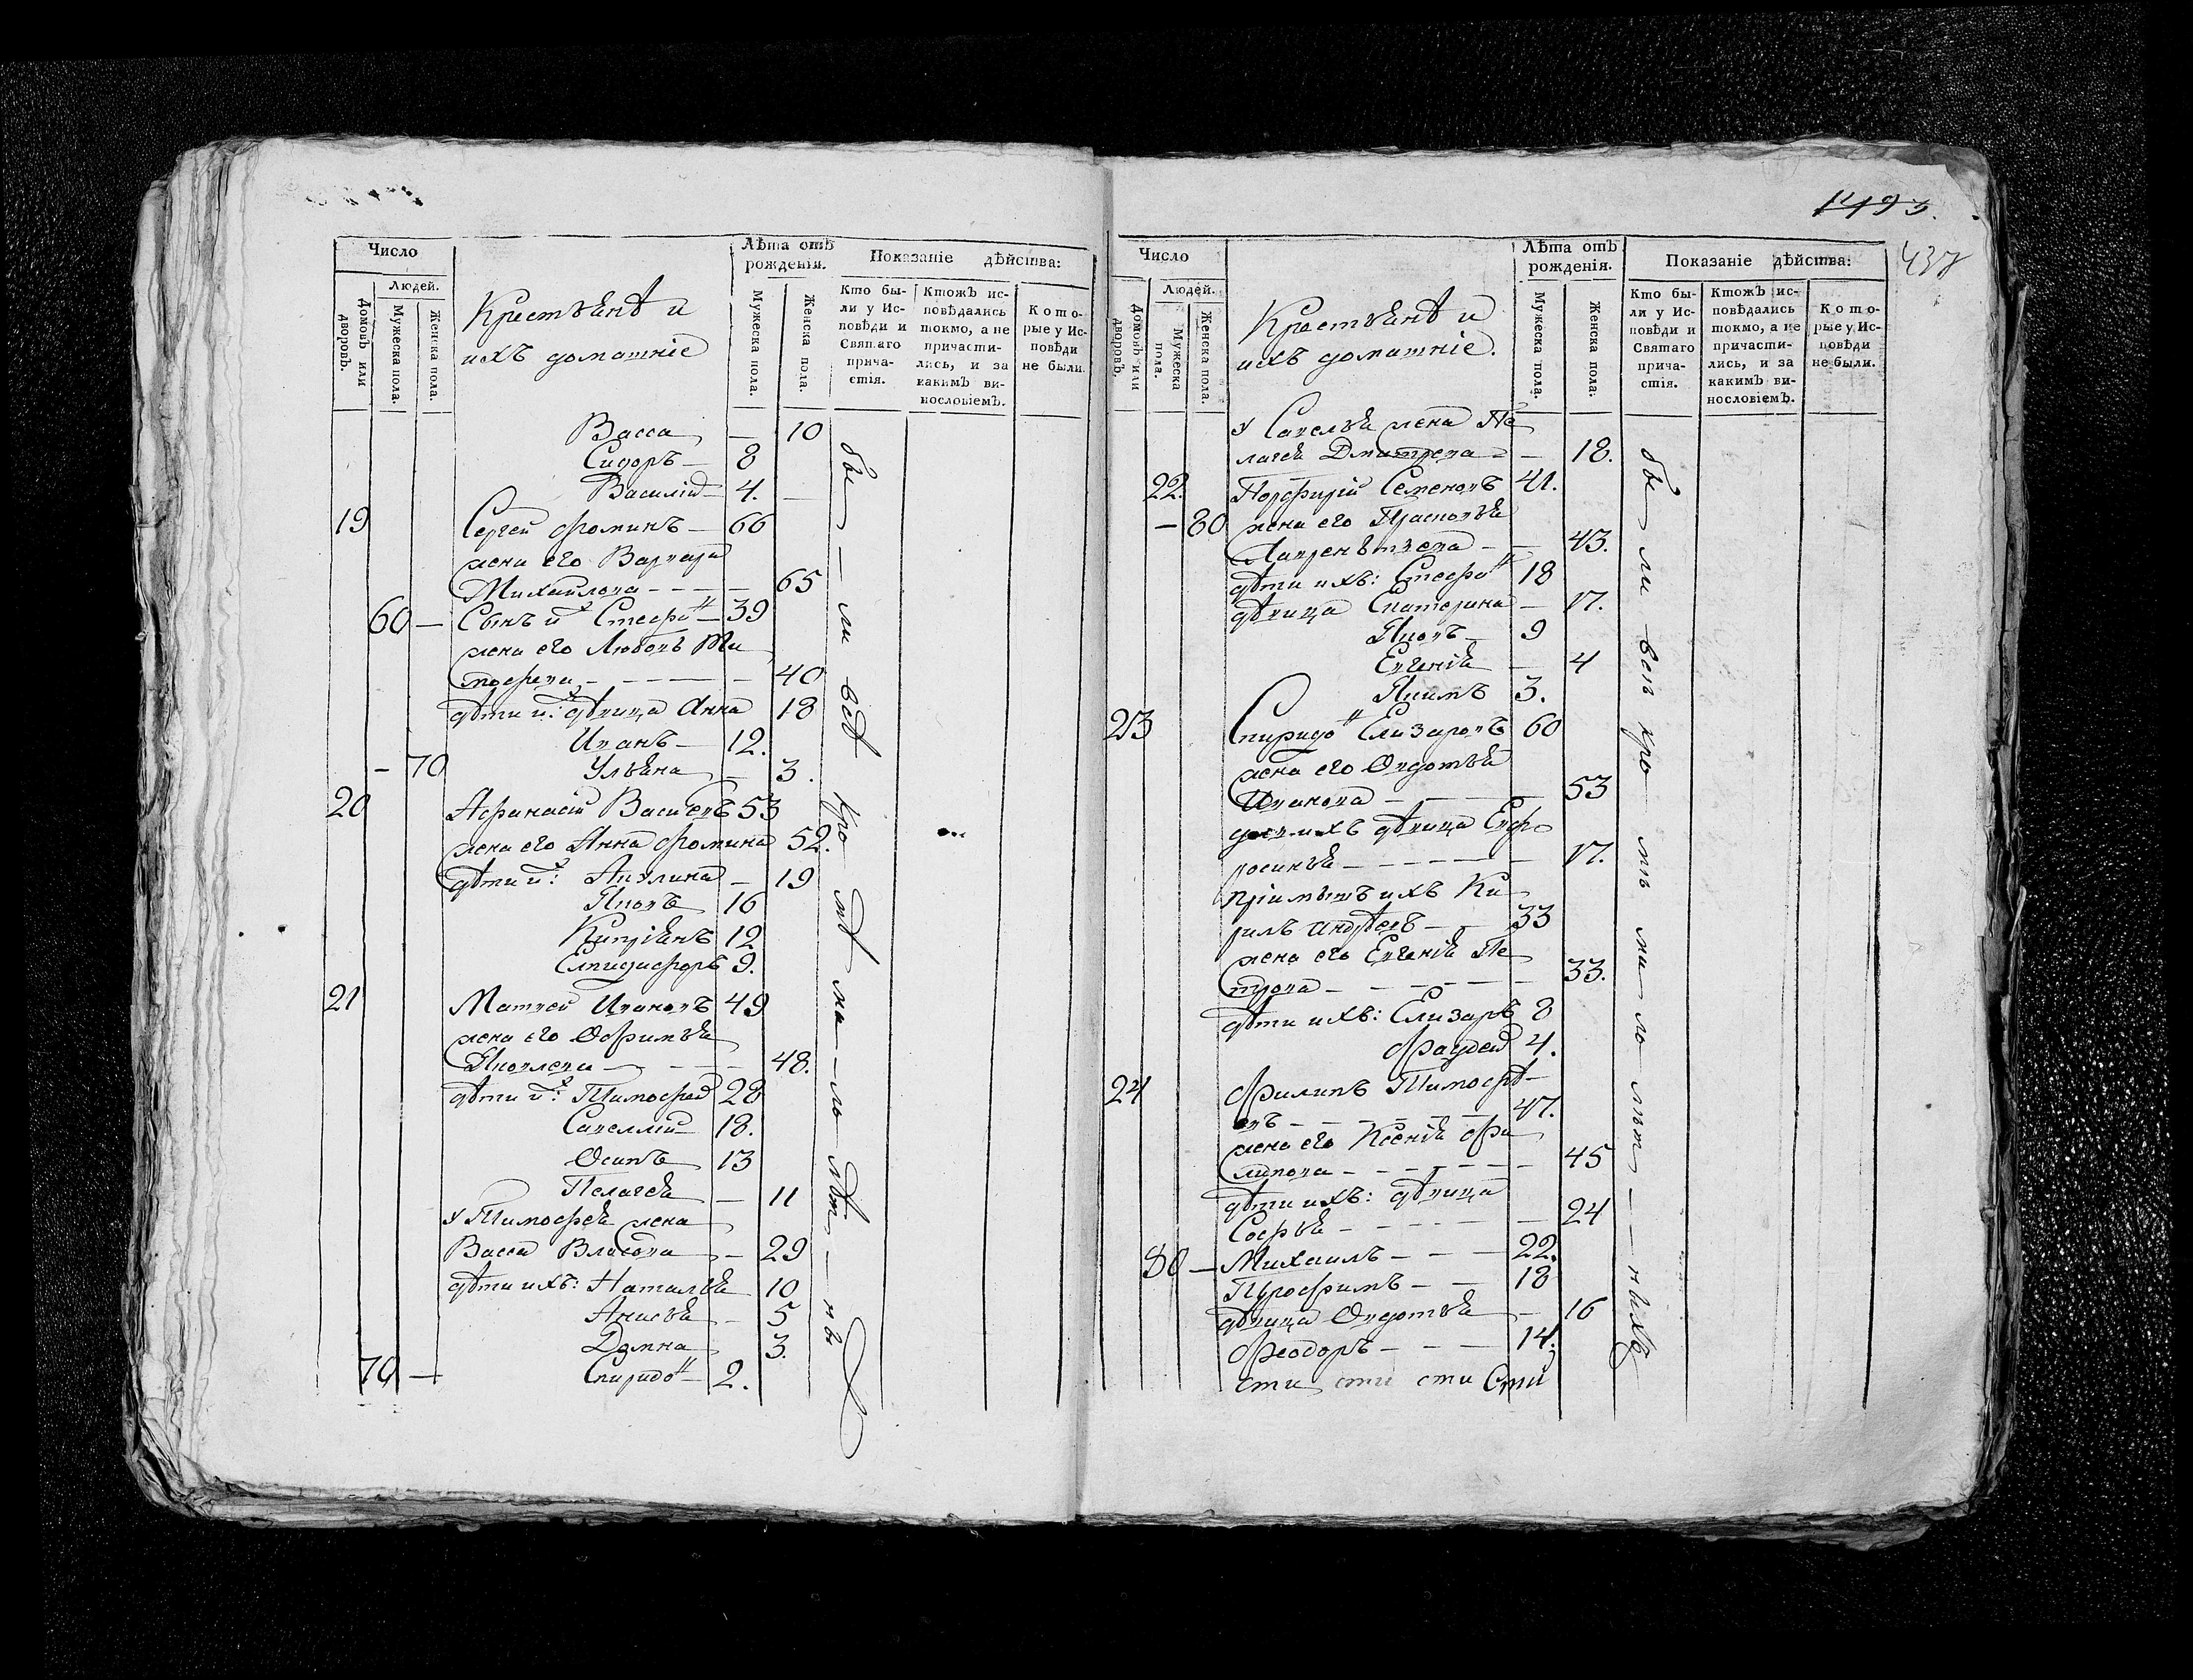 Число
Людей.
Домовъ или дворовъ.
Мужеска пола.
Женска пола.
Крестьянѣ и
ихъ домашніе
Лѣта отъ
рожденія.
Мужеска пола.
Женска пола.
Показаніе дѣйства:
Кто бы-
ли у Ис-
повѣди и
Святаго
прича-
стія.
Ктожъ ис-
повѣдались
токмо, а не
причасти-
лись, и за
какимъ ви-
нословіемъ.
Кото-
рые у Ис-
повѣди
не были.
Васса — 10
Сидоръ — 8
Василій 4. —
19 Сергей Фоминъ — 66
жена его Варвара
Михайлова — — — 65
60 — Сынъ их Стефан — 39
жена его Любовь Ти
мофеева — — — 40
дѣти их: дѣвица Анна 18
Иванъ — 12.
— 70 Ульяна — 3.
20 Афанасій Васильевъ 53
жена его Анна Фомина 52.
дѣти их: Акулина — 19
Яковъ 16
Кипріянъ 12
Елпидифоръ 9.
21 Матвей Ивановъ 49
жена его Офимья
Яковлева — — — 48.
дѣти их: Тимофей 28
Савелий 18.
Осипъ 13
Пелагея — 11
у Тимофея жена
Васса Власова — 29
дѣти ихъ: Наталья 10
Анисья — 5
Домна 3.
70 — Спиридон — 2.
бы — — ли всѣ кро мѣ ма — ло лѣт — — ныхъ
1493.
437
Число
Людей.
Домовъ или дворовъ.
Мужеска пола.
Женска пола.
Крестьянѣ и
ихъ домашніе.
Лѣта отъ
рожденія.
Мужеска пола.
Женска пола.
Показаніе дѣйства:
Кто бы-
ли у Ис-
повѣди и
Святаго
прича-
стія.
Ктожъ ис-
повѣдались
токмо, а не
причасти-
лись, и за
какимъ ви-
нословіемъ.
Кото-
рые у Ис-
повѣди
не были.
у Савелья жена Пе
лагея Дмитрева — — 18.
22. Порфирій Семеновъ 41.
— 80 жена его Прасковья
Лаврентьева — — 43.
дѣти ихъ: Стефан 18
дѣвица Екатерина — 17.
Яковъ — 9
Евгенія — 4
Якимъ 3.
23 Спиридон Елизаровъ 60
жена его Овдотья
Иванова — — 53
дочь ихъ дѣвица Евфро
росинья — — — — — — 17.
пріимышъ ихъ Ки
рилъ Андреевъ — — 33
жена его Евгенія Пе
трова — — — — — 33.
дѣти ихъ: Елизаръ 8
Фаддей 4.
24 Филипъ Тимофѣ—
евъ — — — — — 47.
жена его Ксенія Фи
липова — — — — — — 45
дѣти ихъ: дѣвица
Софья — — — — — 24
80 — Михаилъ — — — 22.
Трофимъ — — 18
дѣвица Овдотья — 16
Феодоръ — — — 14.
сти сти сти Сти
бы ли всѣ кро мѣ ма ло лѣт — — ныхъ